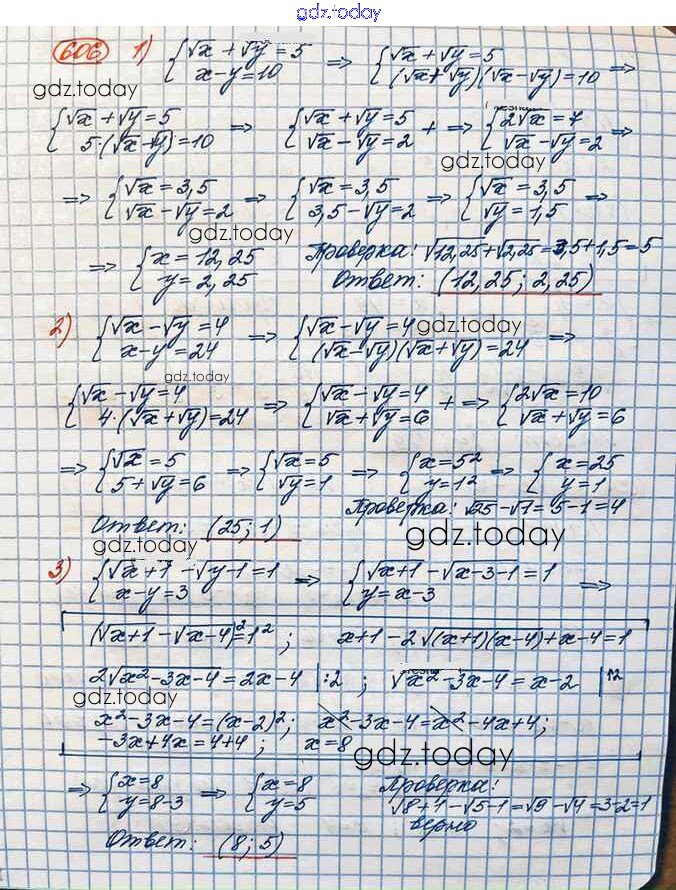 gdz.today
606 1) {√x + √y = 5 ; x−y = 10 ⇒ {√x + √y = 5 ; (√x + √y)(√x − √y) = 10 ⇒
gdz.today
{√x + √y = 5 ; 5·(√x − √y) = 10 ⇒ {√x + √y = 5 ; √x − √y = 2 + ⇒ {2√x = 7 ; √x − √y = 2 ⇒
gdz.today
⇒ {√x = 3,5 ; √x − √y = 2 ⇒ {√x = 3,5 ; 3,5 − √y = 2 ⇒ {√x = 3,5 ; √y = 1,5 ⇒
gdz.today
⇒ {x = 12,25 ; y = 2,25 Проверка: √12,25 + √2,25 = 3,5 + 1,5 = 5
Ответ: (12,25; 2,25)
2) {√x − √y = 4 ; x−y = 24 ⇒ {√x − √y = 4 ; (√x − √y)(√x + √y) = 24 ⇒
gdz.today
gdz.today
{√x − √y = 4 ; 4·(√x + √y) = 24 ⇒ {√x − √y = 4 ; √x + √y = 6 + ⇒ {2√x = 10 ; √x + √y = 6
⇒ {√x = 5 ; 5 + √y = 6 ⇒ {√x = 5 ; √y = 1 ⇒ {x = 5² ; y = 1² ⇒ {x = 25 ; y = 1
Проверка: √25 − √1 = 5 − 1 = 4
Ответ: (25; 1)
gdz.today
gdz.today
3) {√x+1 − √y−1 = 1 ; x−y = 3 ⇒ {√x+1 − √x−3−1 = 1 ; y = x−3 ⇒
(√x+1 − √x−4)² = 1² ; x+1 − 2√(x+1)(x−4) + x−4 = 1
2√x²−3x−4 = 2x−4 |:2 ; √x²−3x−4 = x−2 |↑2
gdz.today
x²−3x−4 = (x−2)²; x²−3x−4 = x²−4x+4;
−3x+4x = 4+4 ; x = 8
gdz.today
⇒ {x = 8 ; y = 8−3 ⇒ {x = 8 ; y = 5 Проверка:
√8+1 − √5−1 = √9 − √4 = 3−2 = 1
верно
Ответ: (8; 5)